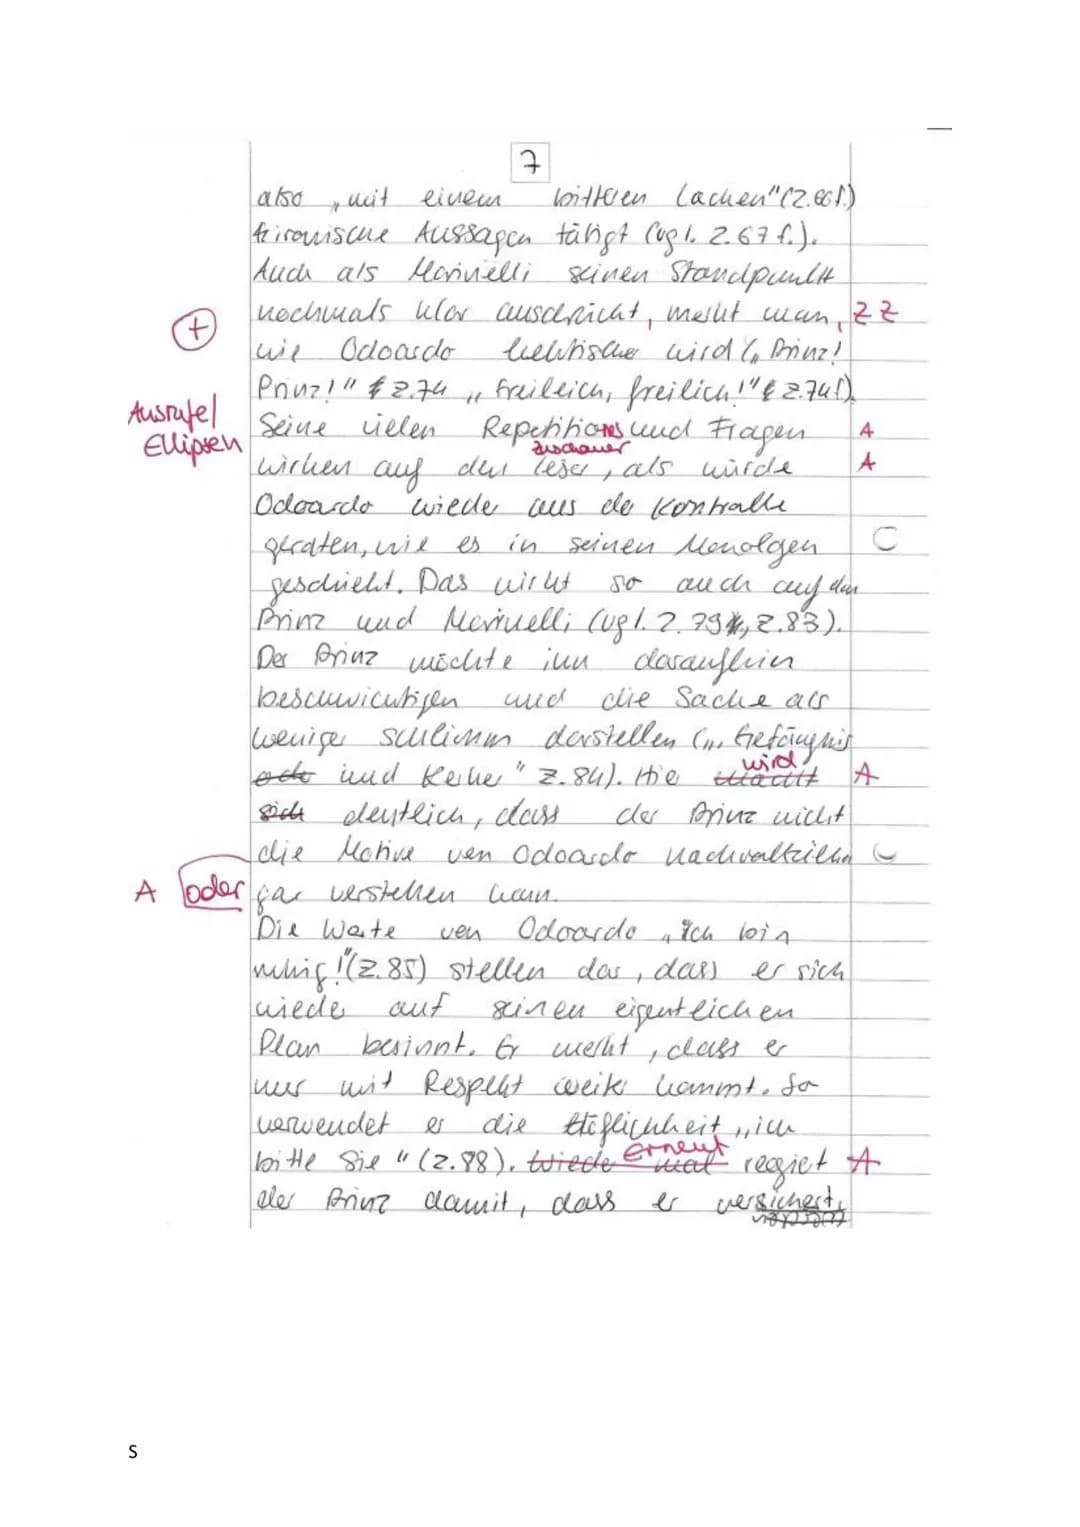 7
also „mit einem bitteren Lachen" (Z.66f.)
ironische Aussagen tätigt (vgl. Z.67f.).
Auch als Marinelli seinen Standpunkt
nochmals klar ausdrückt, merkt man, Z Z
+
wie Odoardo hektischer wird („Prinz!
Prinz!" Z.74 „Freileich, freilich!" Z.74f).
Ausrufe/
Ellipsen
Seine vielen Repetitions und Fragen A
Zuschauer
wirken auf den Leser, als würde A
Odoardo wieder aus der Kontrolle
geraten, wie es in seinen Monolgen
geschieht. Das wirkt so auch auf den
Prinz und Marinelli (vgl. Z.79, Z.83).
Der Prinz möchte ihn daraufhin
beschwichtigen und die Sache als
weniger schlimm darstellen („Gefängnis
wird
oder und Kerker" Z.84). Hier macht A
sich deutlich, dass der Prinz nicht
die Motive von Odoardo nachvollziehen
A oder gar verstehen kann.
Die Worte von Odoardo „Ich bin
ruhig!" (Z.85) stellen dar, dass er sich
wieder auf seinen eigentlichen
Plan besinnt. Er merkt, dass er
nur mit Respekt weiter kommt. So
verwendet er die Höflichkeit „ich
erneut
bitte Sie" (Z.88). Wieder mal regiert A
der Prinz damit, dass er versichert,
S